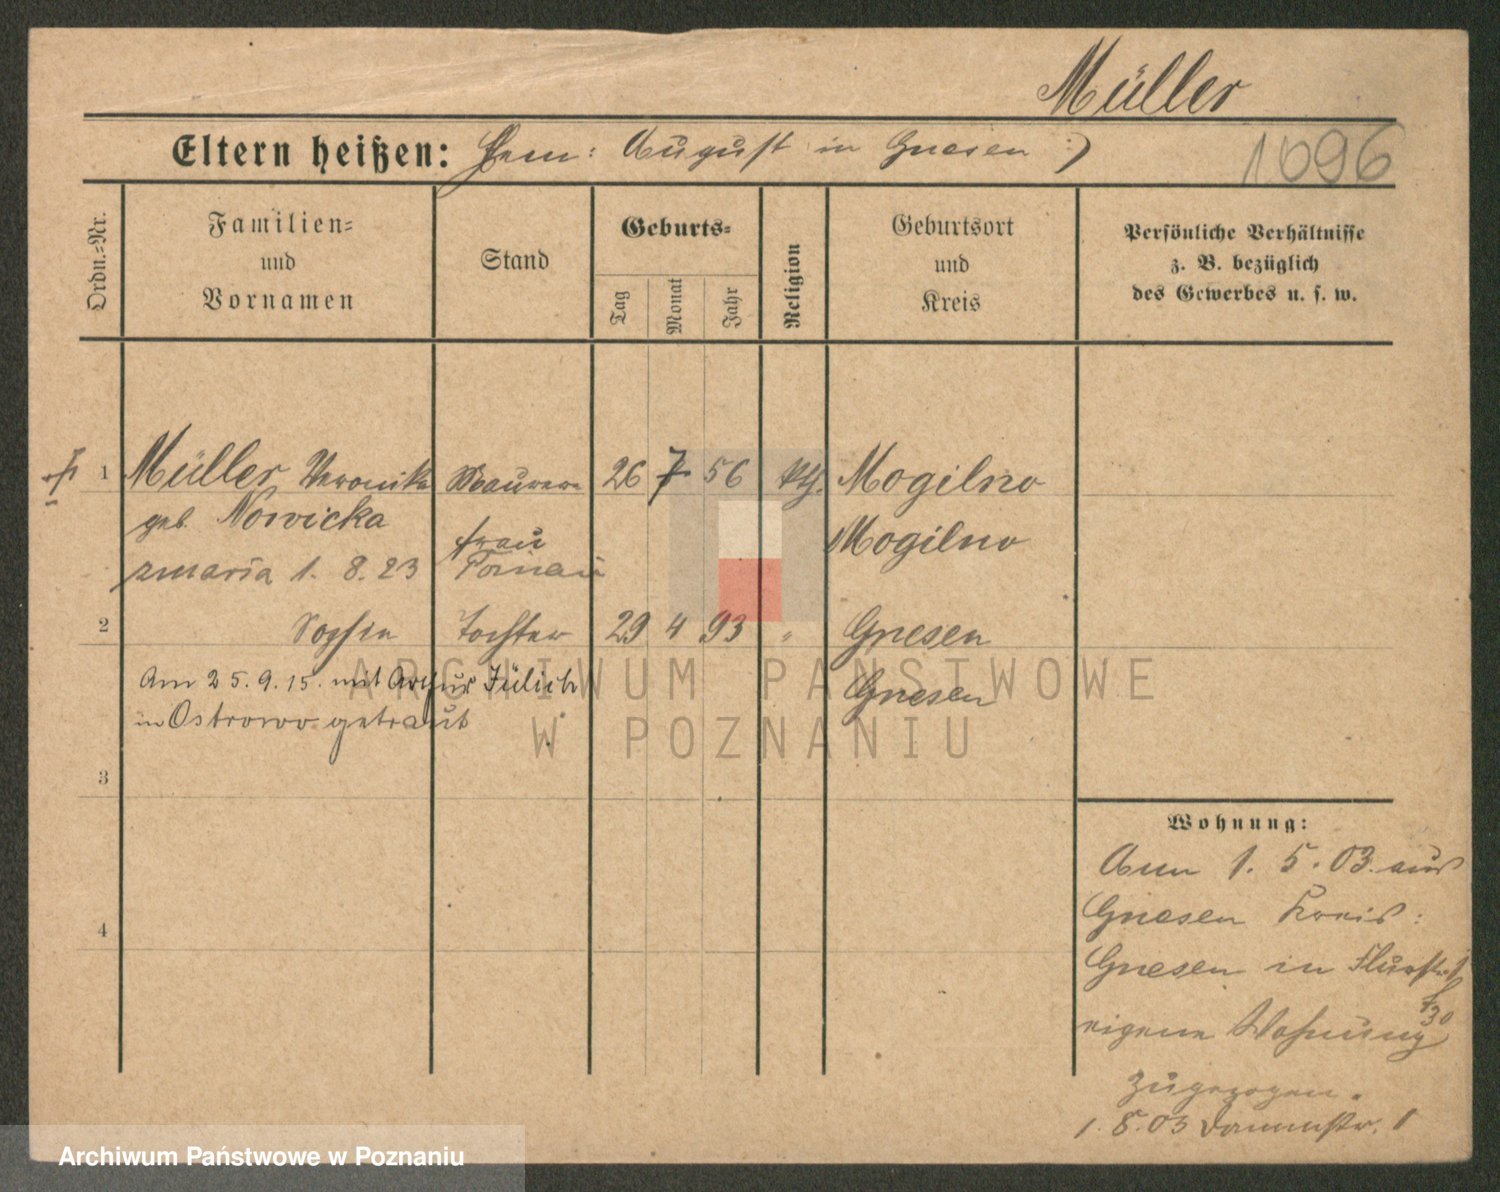 Müller
Eltern heißen: Hem: August in Gnesen :)
1096
Ordn.-Nr.
Familien-
und
Vornamen
Stand
Geburts-
Tag
Monat
Jahr
Religion
Geburtsort
und
Kreis
Persönliche Verhältnisse
z. B. bezüglich
des Gewerbes u. s. w.
1 Müller Veronika Maurer- 26 7 56 kth. Mogilno
geb. Nowicka frau Mogilno
zmarła 1. 8. 23
2 Sophie Tochter 29 4 93 " Gnesen
Am 25.9.15. mit Arthur Jülich Gnesen
in Ostrowo getraut
3
4
Wohnung:
Am 1. 5. 03. aus
Gnesen Kreis:
Gnesen in Flurstr.
eigene Wohnung
zugezogen.
1. 8. 03 Dammstr. 1
ARCHIWUM PAŃSTWOWE
W POZNANIU
Archiwum Państwowe w Poznaniu